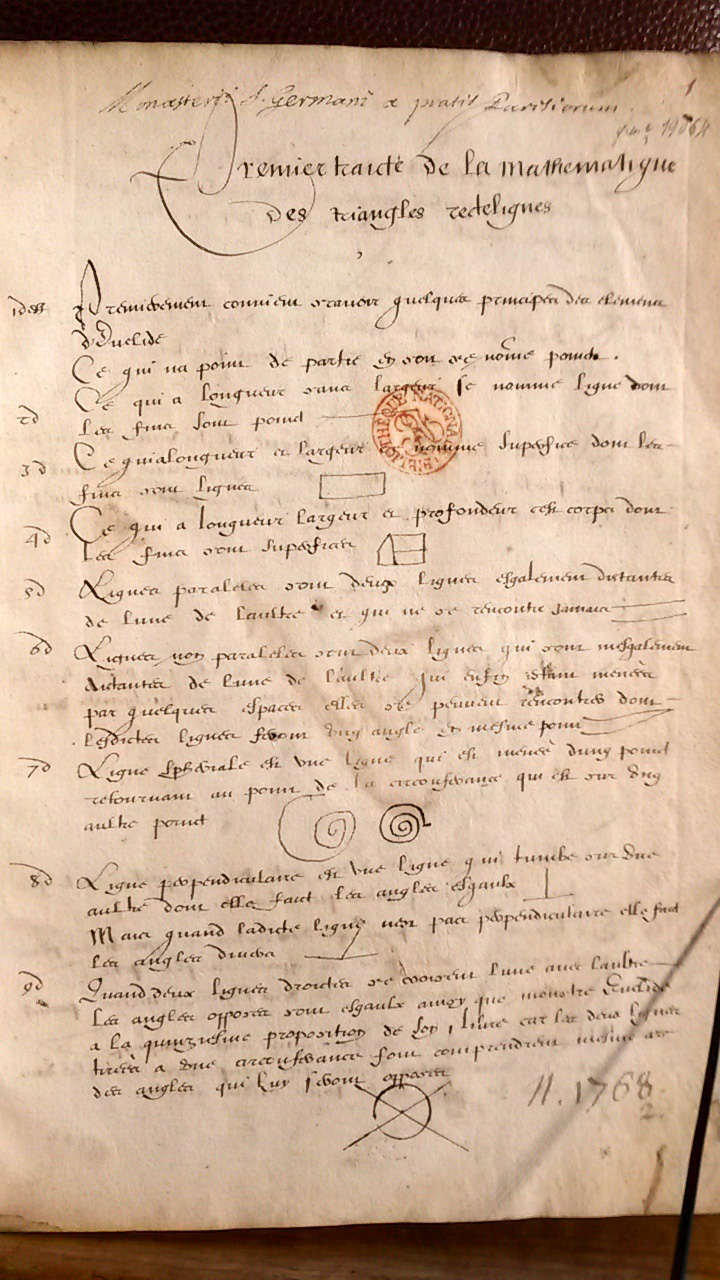 Monasterij S. Germani a pratis Parisiorum
1
Premier traicte de la mathematique
des triangles rectelignes
Premierement convient scavoir quelques principes des elemens
d'Euclide
Ce qui na point de partie se nomme poinct.
2d Ce qui a longueur sans largeur se nomme ligne dont
les fins sont poinct
3d Ce qui a longueur et largeur se nomme superfice dont les
fins sont lignes
4d Ce qui a longueur largeur et profondeur cest corps dont
les fins sont superfices
5d Lignes paraleles sont deux lignes esgalement distantes
de lune de laultre et qui ne se rencontre jamais
6d Lignes non paraleles sont deux lignes qui sont inesgalement
distantes de lune de laultre qui enfin estant menees
par quelques espaces elles se peuvent rencontrer dont
lesdictes lignes feront ung angle en mesme poinct
7d Ligne spherale est une ligne qui est menee dung poinct
retournant au poinct de la circonferance qui est sur ung
aultre poinct
8d Ligne perpendiculaire est une ligne qui tumbe sur une
aultre dont elle faict les angles esgaulx
Mais quand ladicte ligne nest pas perpendiculaire elle faict
les angles divers
9d Quand deux lignes droictes se couppent lune avec laultre
les angles opposez sont esgaulx ainsy que monstre Euclide
a la quinziesme proposition de son 1 livre car les deux lignes
tirees a une circunferance font comprendre mesme arc
des angles qui luy seront opposez
11.1768
2
BIBLIOTHEQUE NATIONA